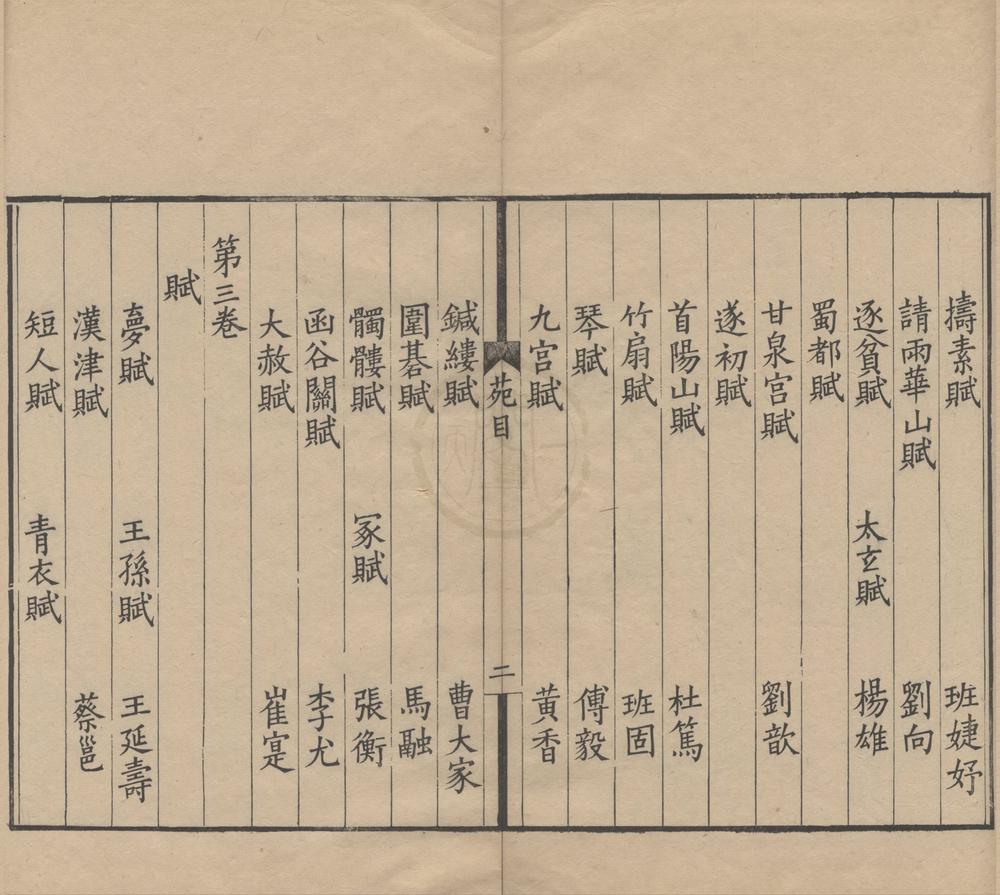 擣素賦 班婕妤
請雨華山賦 劉向
逐貧賦 太玄賦 楊雄
蜀都賦
甘泉宮賦 劉歆
遂初賦
首陽山賦 杜篤
竹扇賦 班固
琴賦 傅毅
九宮賦 黃香
苑目 二
鍼縷賦 曹大家
圍碁賦 馬融
髑髏賦 冢賦 張衡
函谷關賦 李尤
大赦賦 崔寔
第三卷
賦
夢賦 王孫賦 王延壽
漢津賦 蔡邕
短人賦 青衣賦